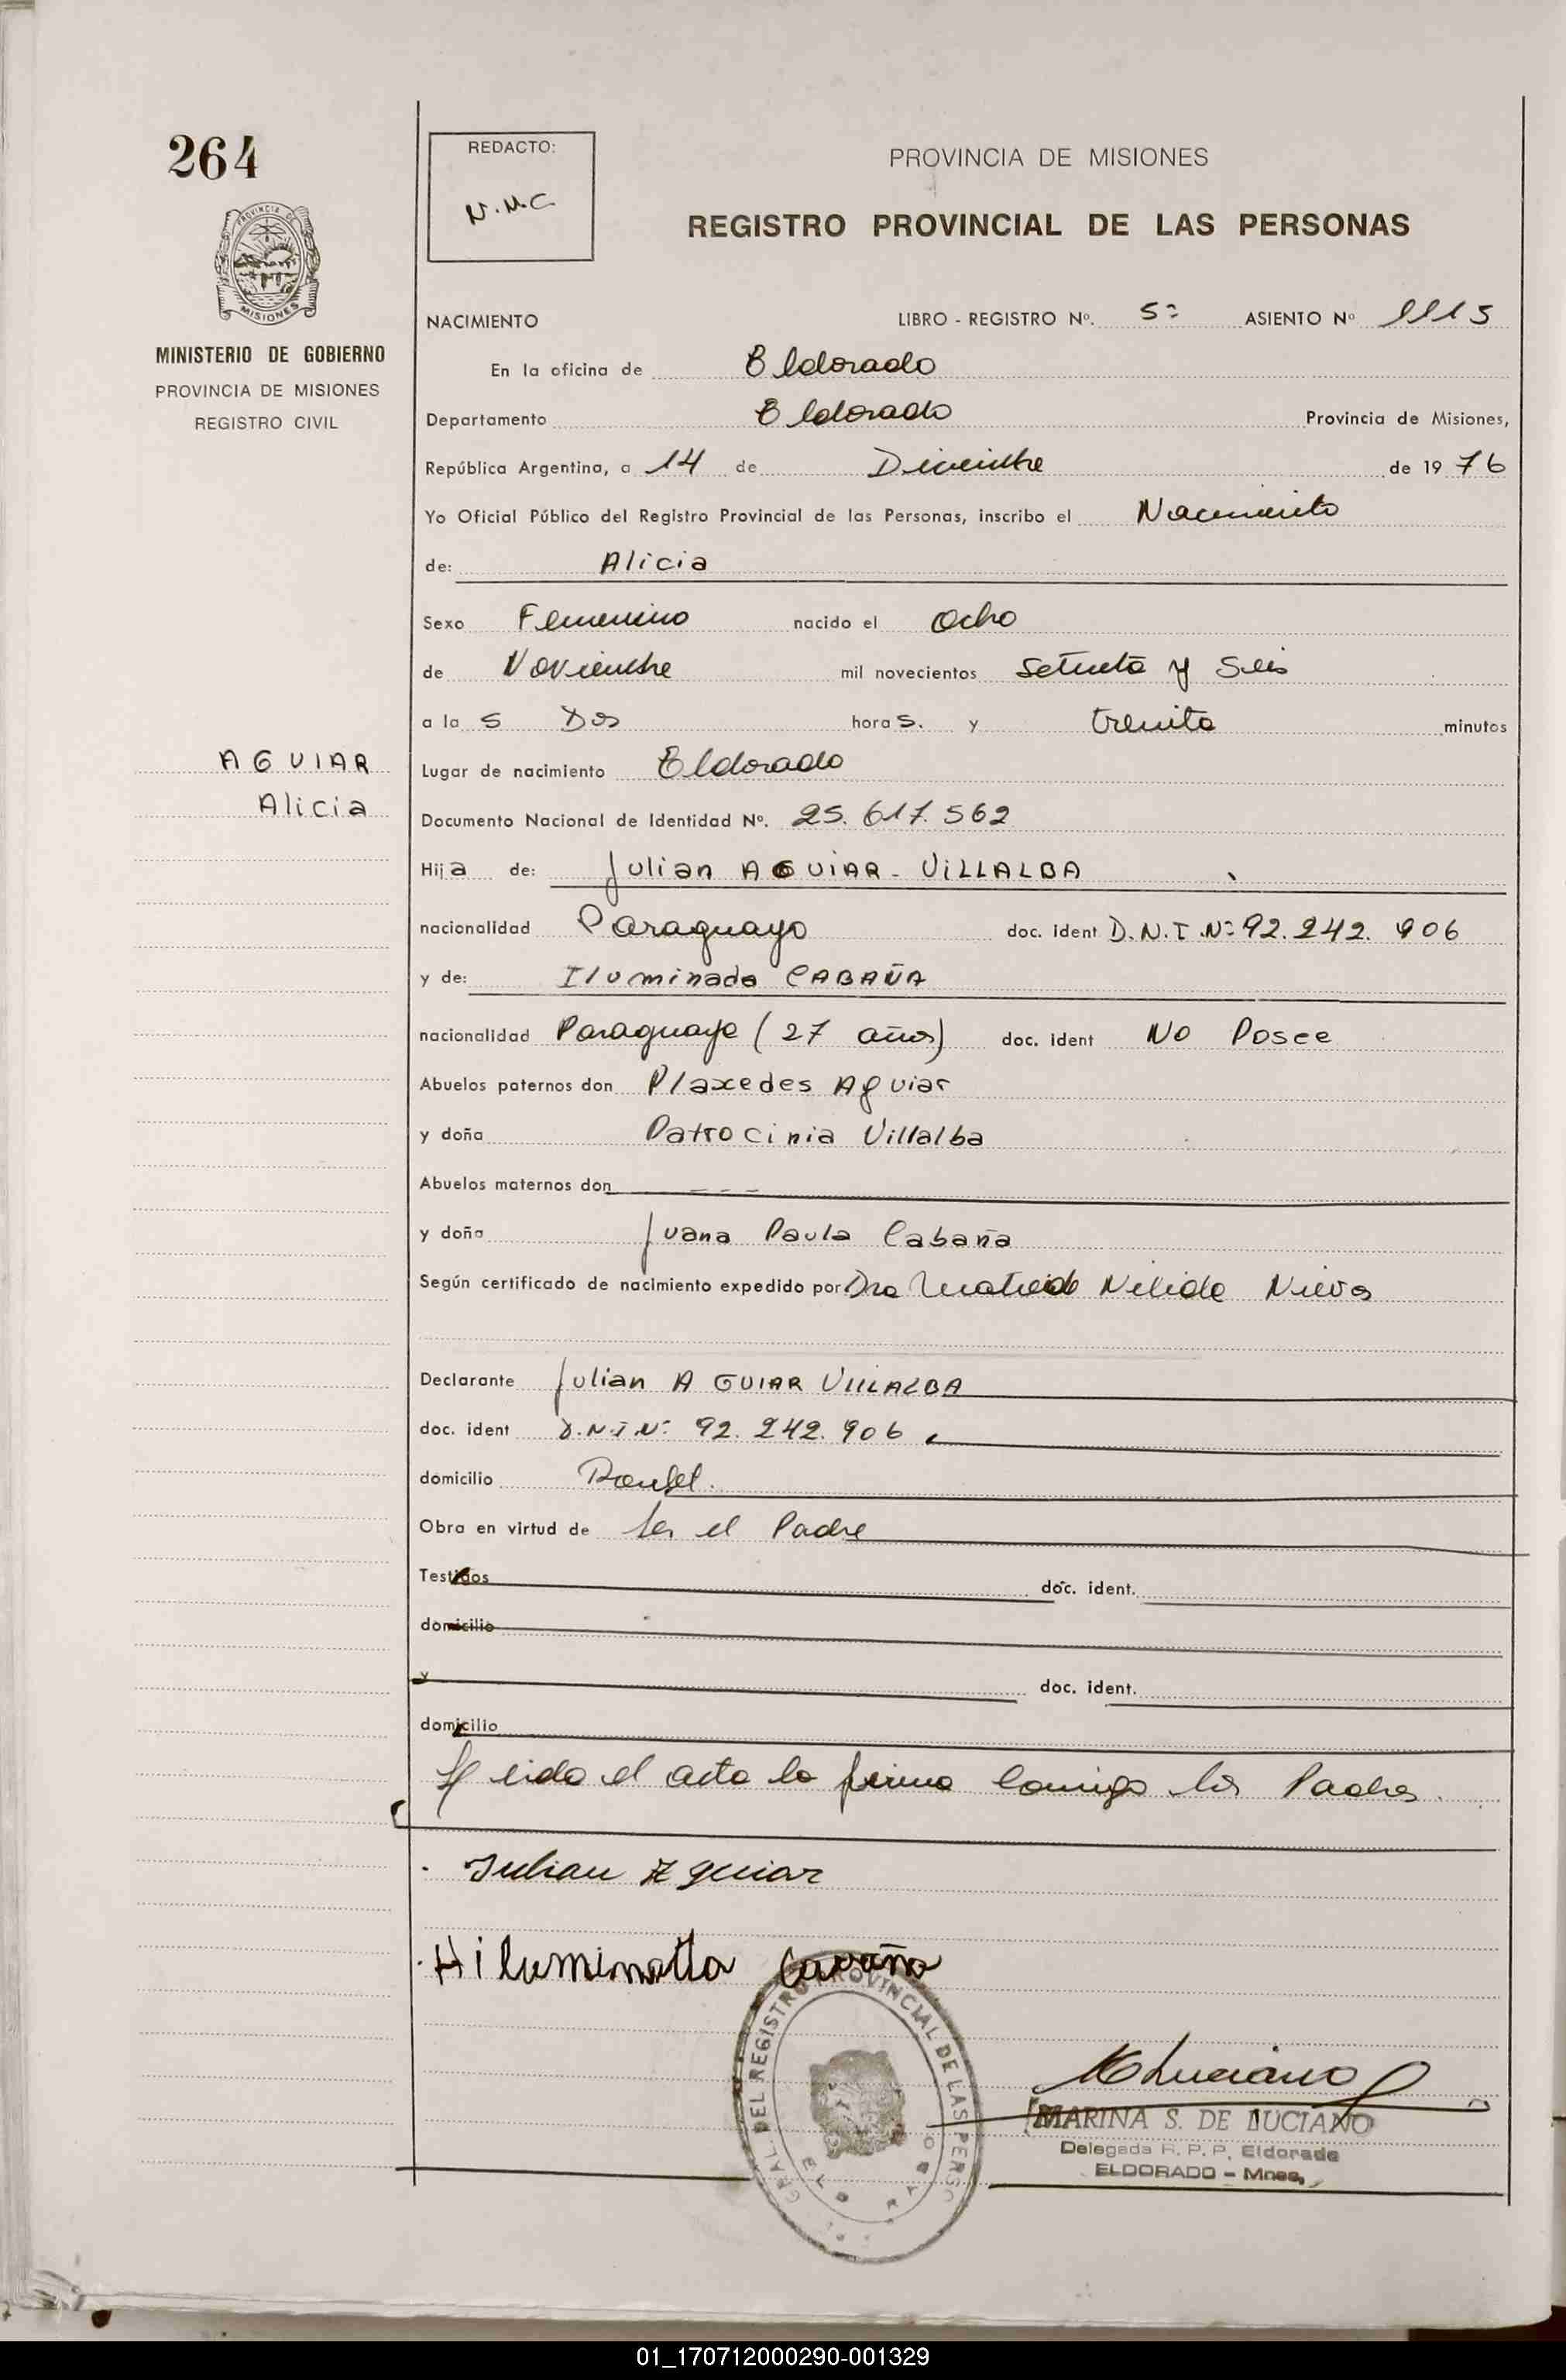 264
PROVINCIA DE
MISIONES
MINISTERIO DE GOBIERNO
PROVINCIA DE MISIONES
REGISTRO CIVIL
AGUIAR
Alicia
REDACTO:
N.N.C
PROVINCIA DE MISIONES
REGISTRO PROVINCIAL DE LAS PERSONAS
NACIMIENTO LIBRO - REGISTRO Nº. 5º ASIENTO Nº 1115
En la oficina de Eldorado
Departamento Eldorado Provincia de Misiones,
República Argentina, a 14 de Diciembre de 1976
Yo Oficial Público del Registro Provincial de las Personas, inscribo el Nacimiento
de: Alicia
Sexo Femenino nacido el ocho
de Noviembre mil novecientos setenta y seis
a las Dos horas. y treinta minutos
Lugar de nacimiento Eldorado
Documento Nacional de Identidad Nº. 25.617.562
Hija de: Julian AGUIAR - VILLALBA
nacionalidad Paraguayo doc. ident D.N.I.Nº 92.242.906
y de: Iluminada CABAÑA
nacionalidad Paraguaya (27 años) doc. ident No Posee
Abuelos paternos don Plaxedes Aguiar
y doña Patrocinia Villalba
Abuelos maternos don - - -
y doña Juana Paula Cabaña
Según certificado de nacimiento expedido por Dra Nélida
Declarante Julian AGUIAR VILLALBA
doc. ident D.N.I Nº 92.242.906
domicilio
Obra en virtud de ser el Padre
Testigos doc. ident.
domicilio
y doc. ident.
domicilio
Leida el acta la firma conmigo los Padres.
Julian Aguiar
Hiluminatta Cavaña
GRAL DEL REGISTRO PROVINCIAL DE LAS PERSO
ELDORADO
MARINA S. DE LUCIANO
Delegada R. P. P. Eldorado
ELDORADO - Mnes.
01_170712000290-001329